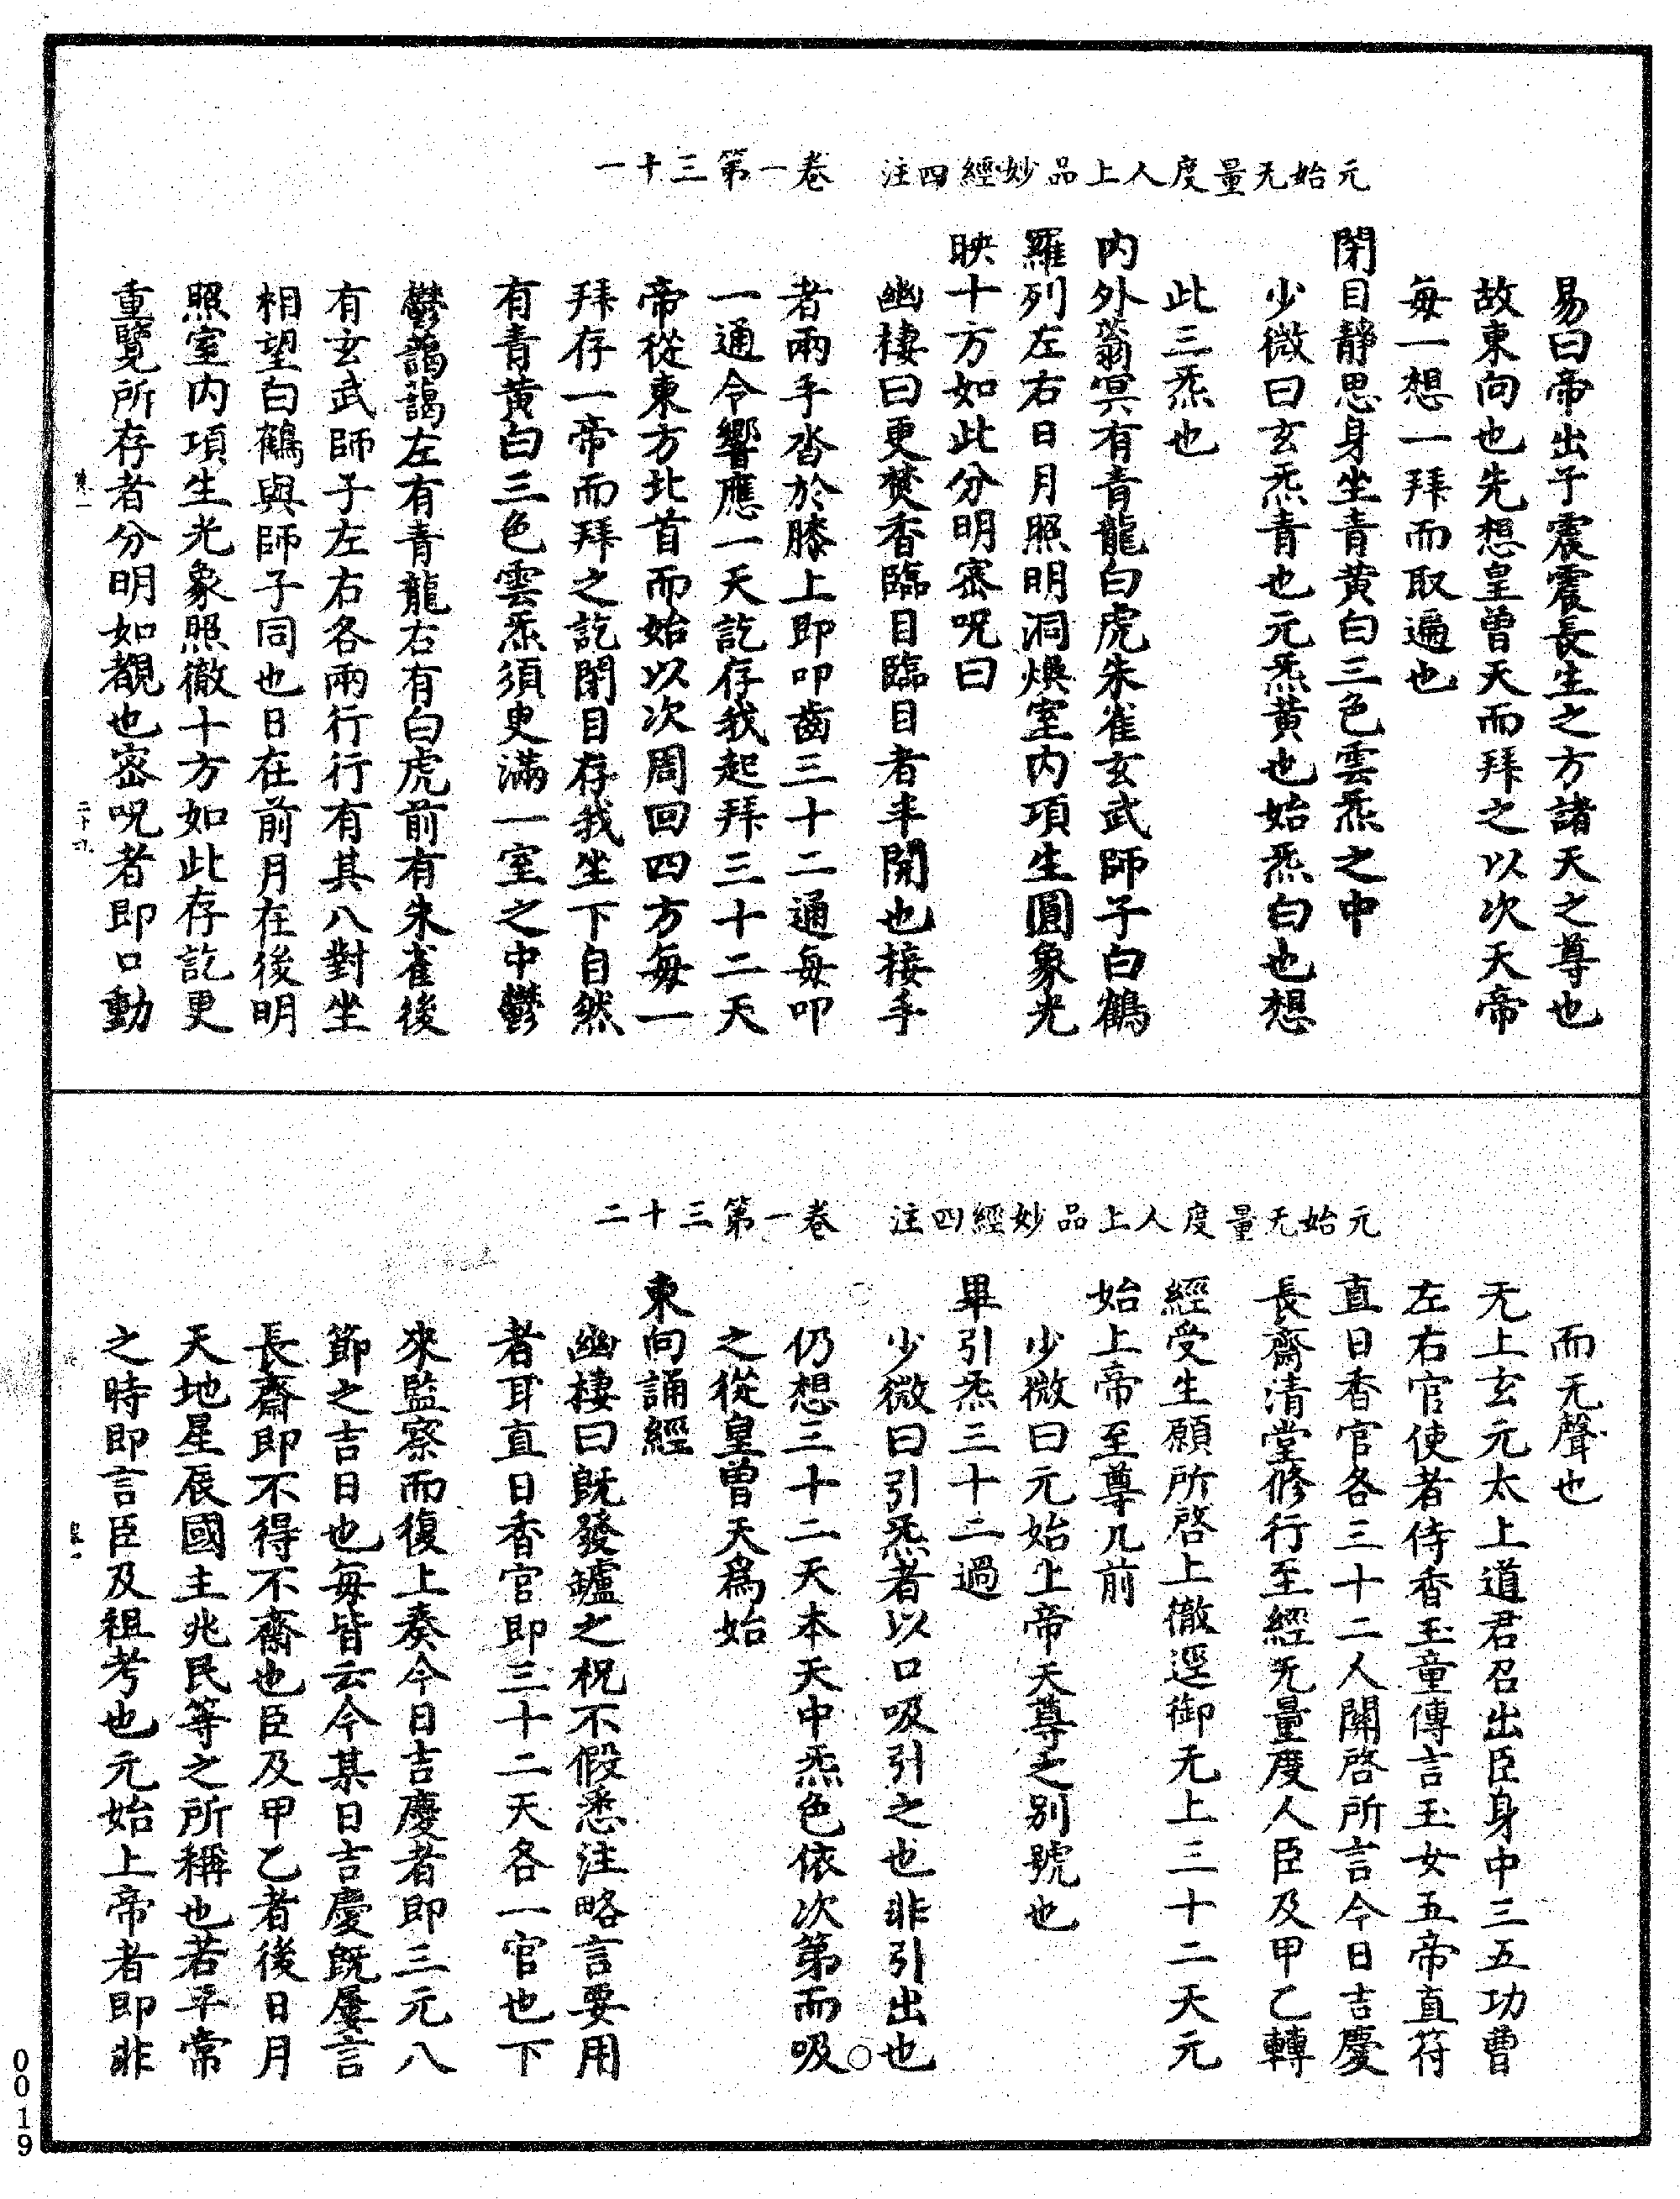 元始无量度人上品妙經四注　卷一第三十一
易曰帝出于震震長生之方諸天之尊也
故東向也先想皇曾天而拜之以次天帝
每一想一拜而取遍也
閉目靜思身坐青黃白三色雲炁之中
少微曰玄炁青也元炁黃也始炁白也想
此三炁也
內外蓊冥有青龍白虎朱雀玄武師子白鶴
羅列左右日月照明洞煥室內項生圓象光
映十方如此分明密呪曰
幽棲曰更焚香臨目臨目者半閉也接手
者兩手沓於膝上即叩齒三十二通每叩
一通令響應一天訖存我起拜三十二天
帝從東方北首而始以次周回四方每一
拜存一帝而拜之訖閉目存我坐下自然
有青黃白三色雲炁須臾滿一室之中鬱
鬱藹藹左有青龍右有白虎前有朱雀後
有玄武師子左右各兩行行有其八對坐
相望白鶴與師子同也日在前月在後明
照室內項生光象照徹十方如此存訖更
重覽所存者分明如覩也密呪者即口動
元始无量度人上品妙經四注　卷一第三十二
而无聲也
无上玄元太上道君召出臣身中三五功曹
左右官使者侍香玉童傳言玉女五帝直符
直日香官各三十二人關啓所言今日吉慶
長齋清堂修行至經无量度人臣及甲乙轉
經受生願所啓上徹逕御无上三十二天元
始上帝至尊几前
少微曰元始上帝天尊之別號也
畢引炁三十二過
少微曰引炁者以口吸引之也非引出也
仍想三十二天本天中炁色依次第而吸
之從皇曾天爲始
東向誦經
幽棲曰旣發鑪之祝不假悉注略言要用
者耳直日香官即三十二天各一官也下
來監察而復上奏今日吉慶者即三元八
節之吉日也每皆云今某日吉慶旣屢言
長齋即不得不齋也臣及甲乙者後日月
天地星辰國主兆民等之所稱也若平常
之時即言臣及祖考也元始上帝者即非
0019